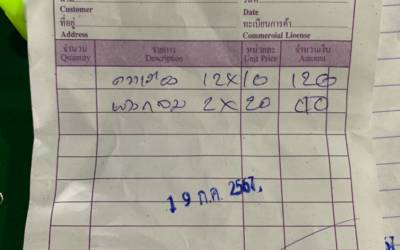 Customer
ที่อยู่
Address
Date
ทะเบียนการค้า
Commercial License
จำนวน รายการ หน่วยละ จำนวนเงิน
Quantity Description Unit Price Amount
12 X 10 120
2 X 20
19 ก.ค. 2567